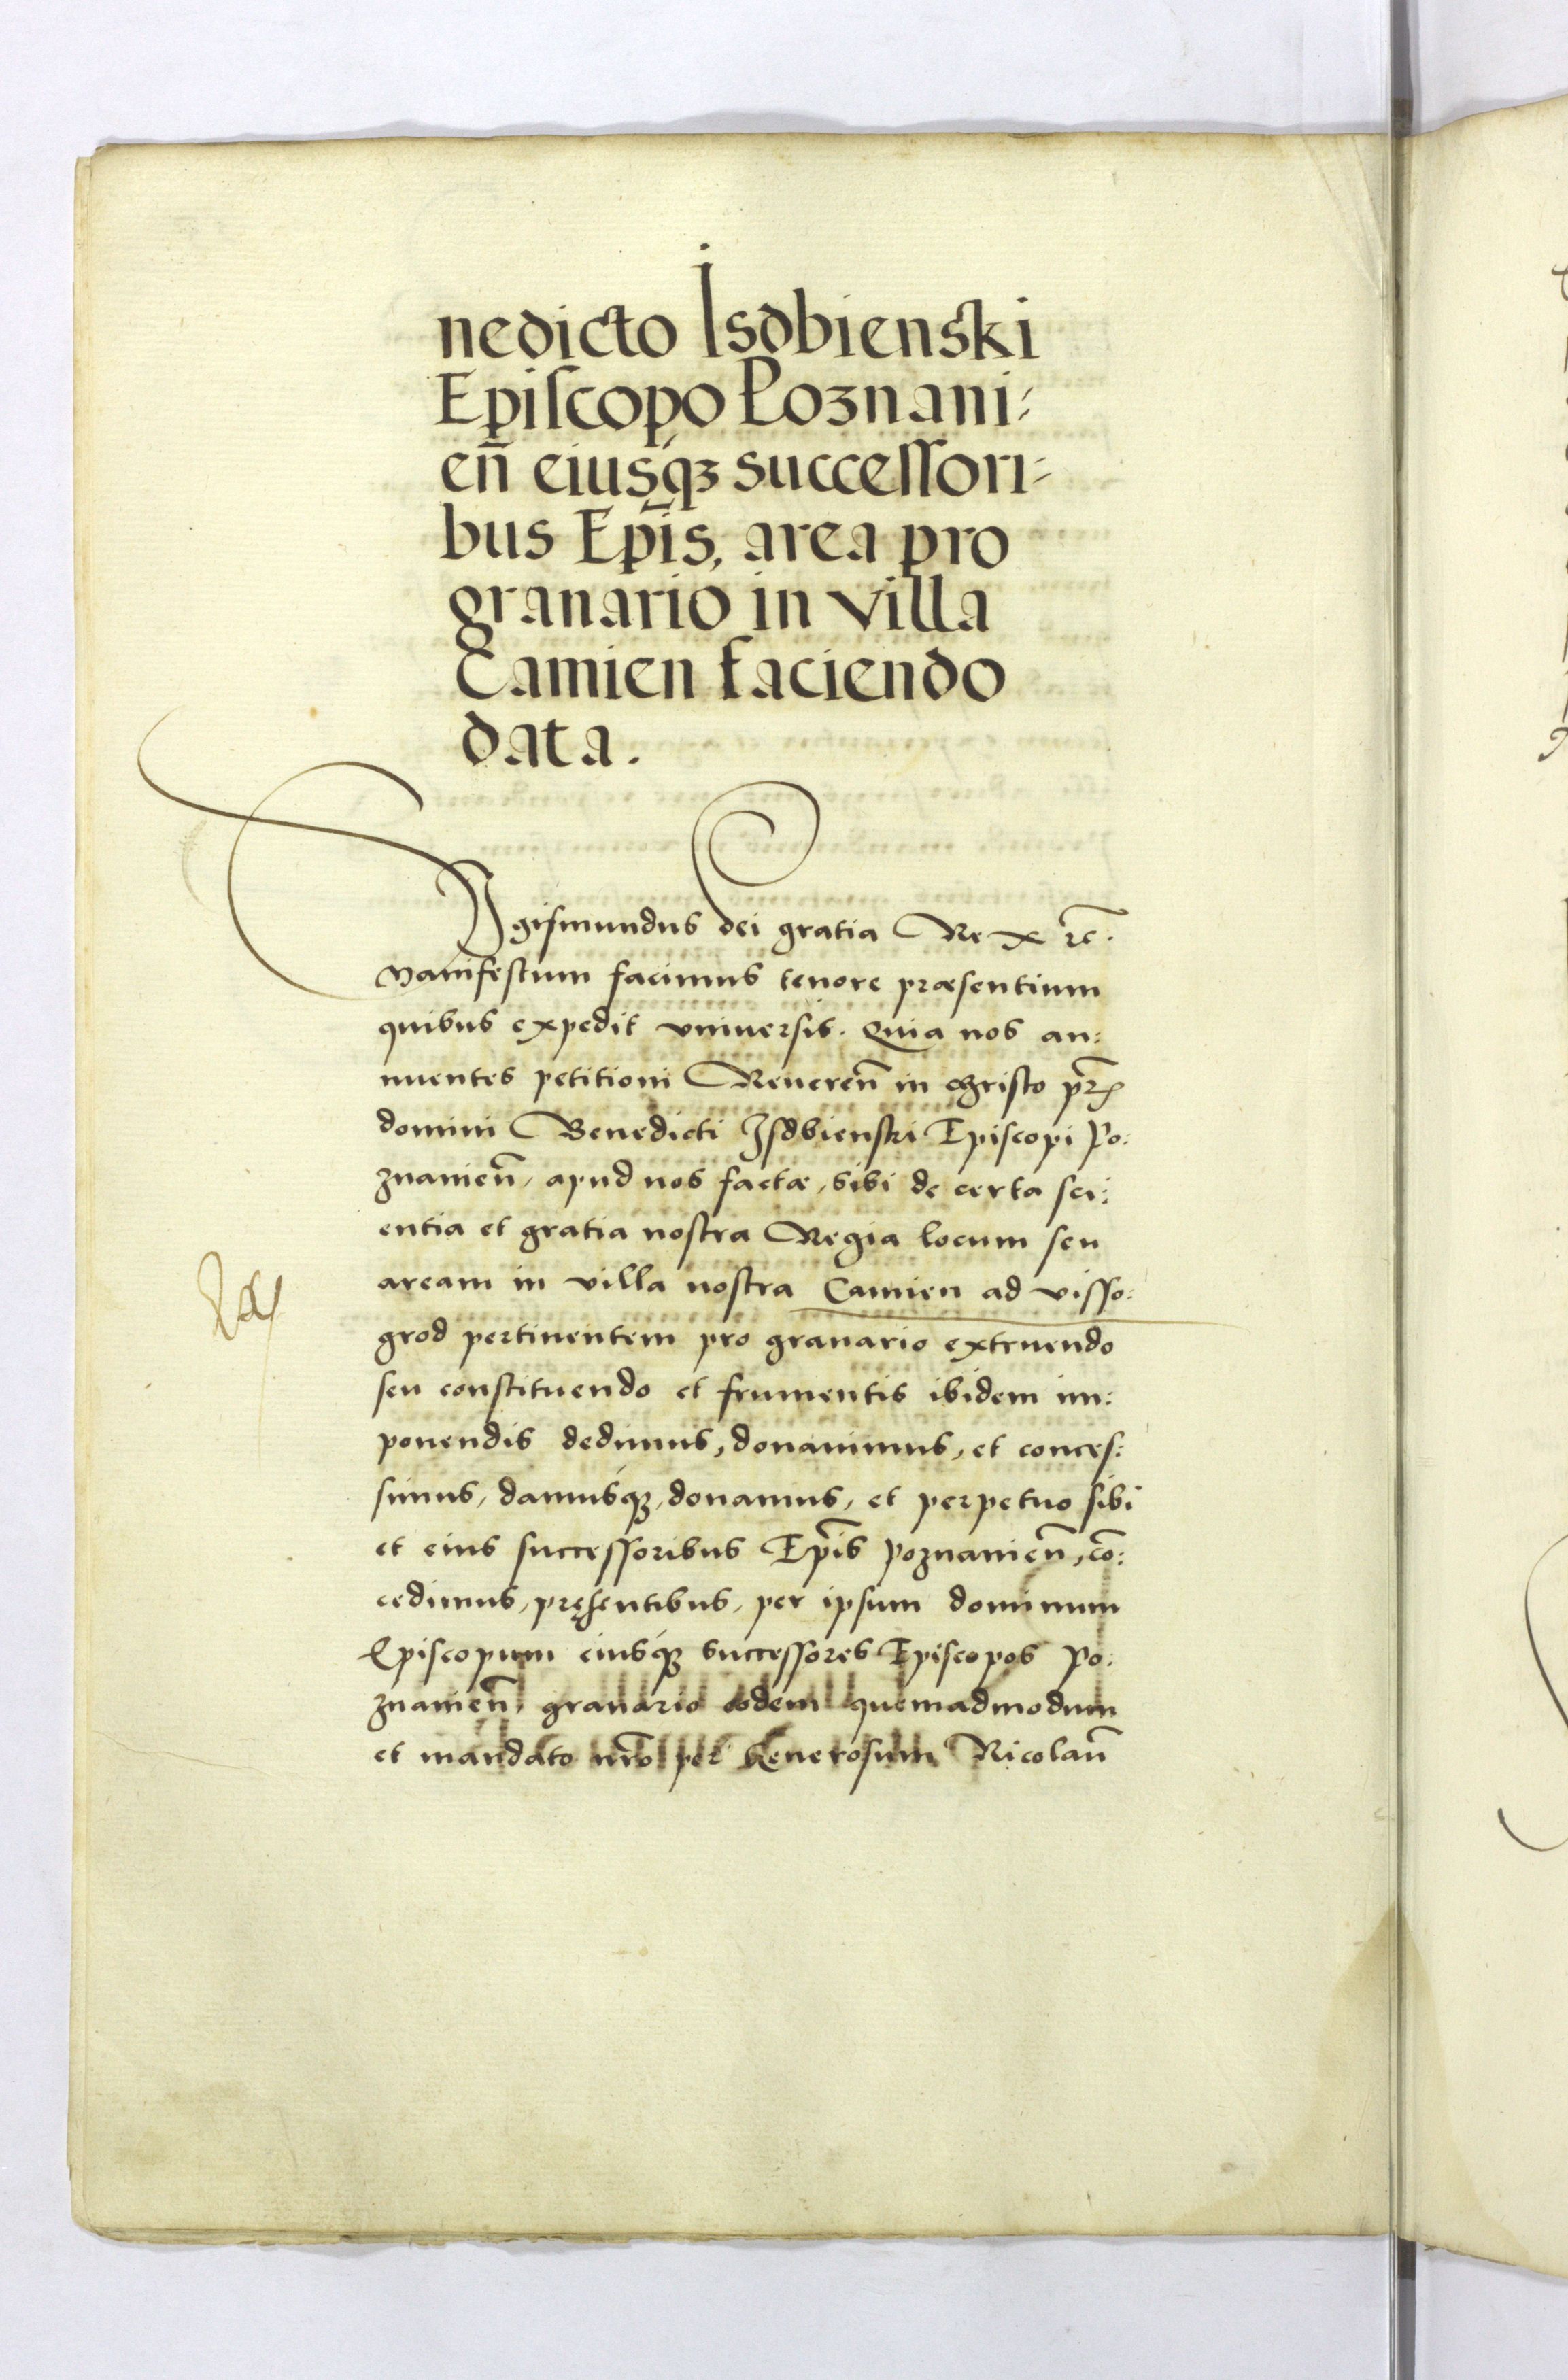 nedicto Isdbienski
Episcopo Poznani=
en̄ eiusq̃ȝ successori=
bus Ep̄is, area pro
granario in villa
Camien faciendo
data.
Sigismundus dei gratia Rex rc̄.
Manifestum facimus tenore præsentium
quibus expedit vniuersis. Quia nos an:
nuentes petitioni Reueren̄ in christo pr̄is
domini Benedicti Isdbienski Episcopi Po:
znanien̄, apud nos factæ, sibi de certa sci:
entia et gratia nostra Regia locum seu
aream in villa nostra Camien ad visso:
grod pertinentem pro granario extruendo
seu constituendo et frumentis ibidem im:
ponendis dedimus, donauimus, et conces:
simus, damusq̃ȝ, donamus, et perpetuo sibi
et eius successoribus Ep̄is poznanien̄, cō:
cedimus, pręsentibus, per ipsum dominum
Episcopum eiusq̃ȝ successores Episcopos Po:
znanien̄, granario eodem quemadmodum
et mandato nr̄o per Generosum Nicolaū